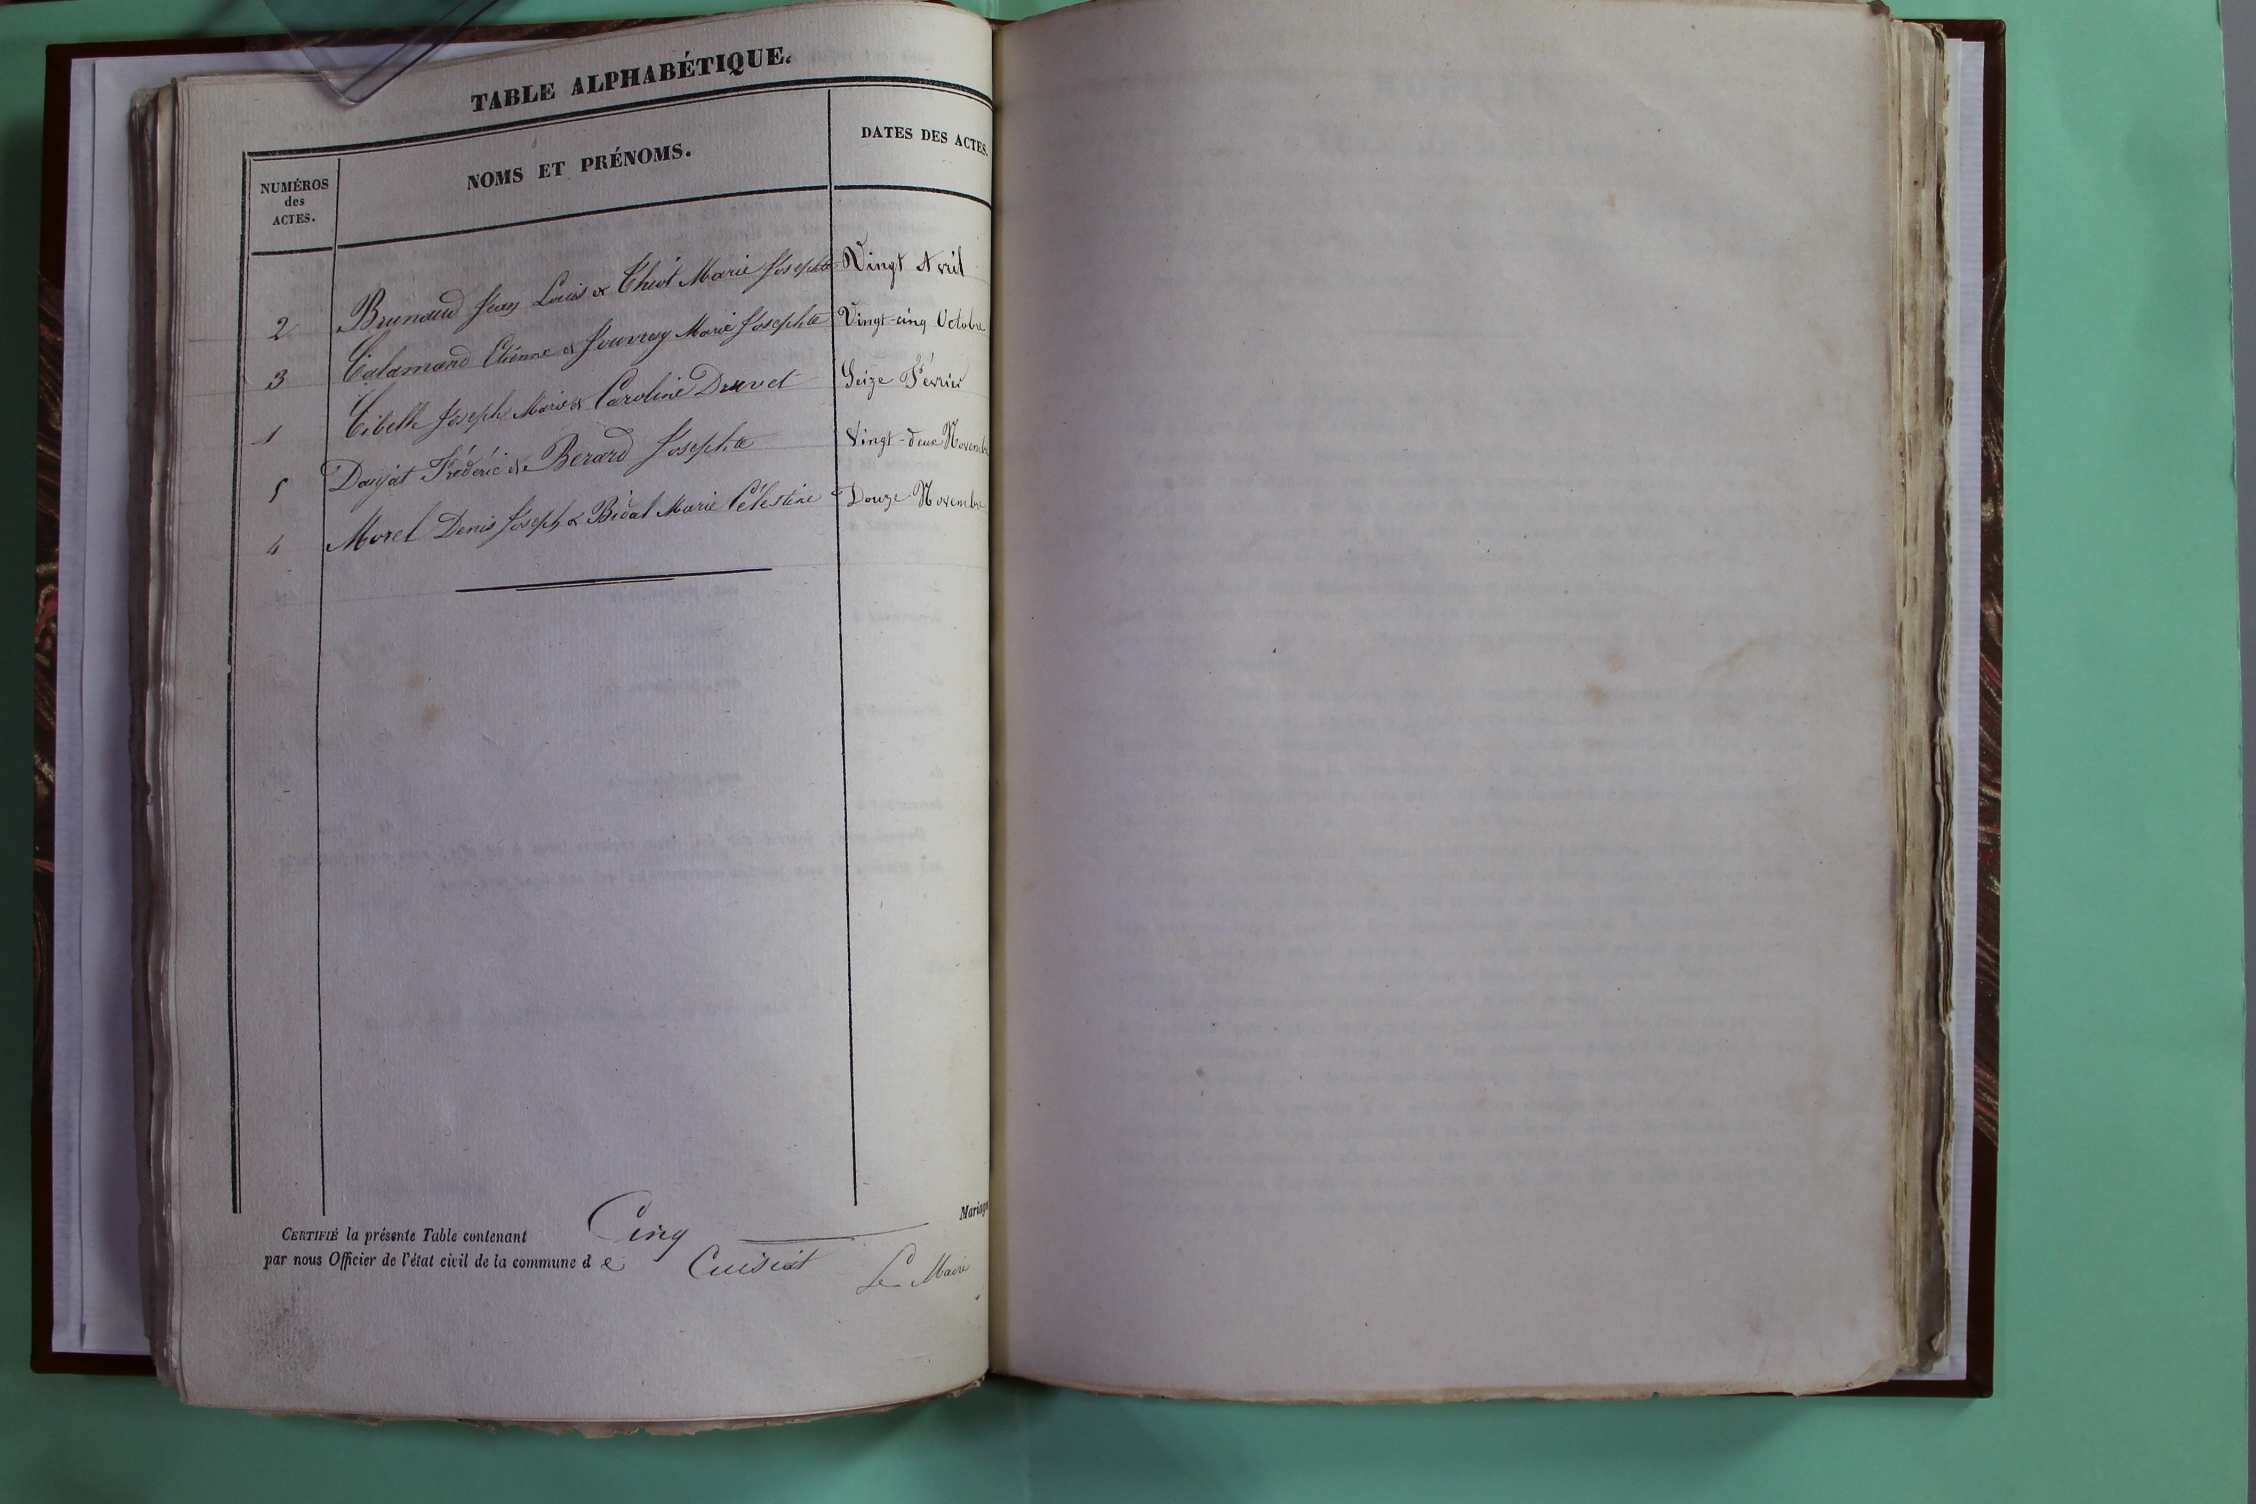 TABLE ALPHABÉTIQUE.
NUMÉROS des ACTES.
NOMS ET PRÉNOMS.
DATES DES ACTES.
2 Brunaud Jean Louis & Marie Josephte Vingt Avril
3 Calamand Etienne & Marie Josephte Vingt-cinq Octobre
1 Cibelle Joseph Marie & Caroline Druvet Seize Février
5 Daujat Frédéric & Berard Josephte Vingt-deux Novembre
4 Morel Denis Joseph & Bidal Marie Célestine Douze Novembre
CERTIFIÉ la présente Table contenant Cinq Mariages
par nous Officier de l'état civil de la commune de Cuisiat Le Maire